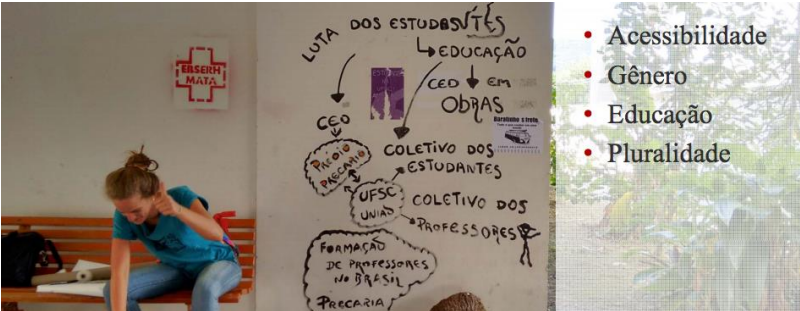 EBSERH
MATA
LUTA DOS ESTUDANTES
EDUCAÇÃO
CED EM
OBRAS
Baratinho & frete
CED
PRÉDIO
PRECÁRIO
COLETIVO DOS
ESTUDANTES
UFSC
UNIÃO
COLETIVO DOS
PROFESSORES
FORMAÇÃO
DE PROFESSORES
NO BRASIL
PRECARIA
• Acessibilidade
• Gênero
• Educação
• Pluralidade